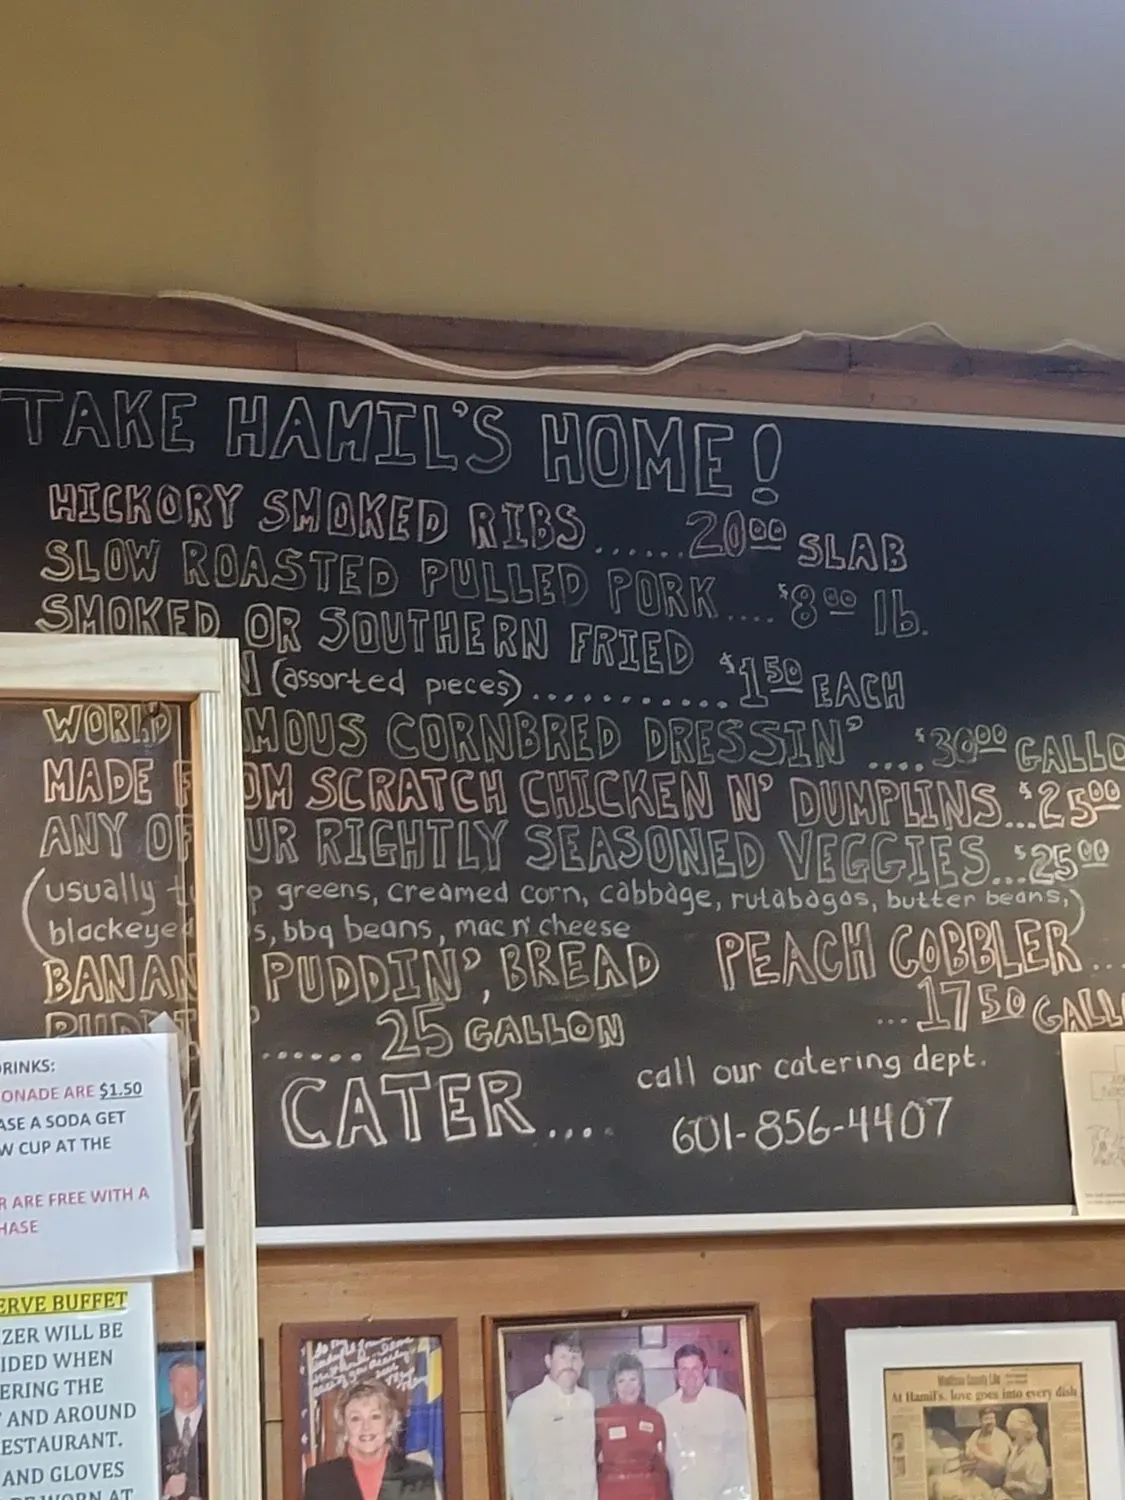 TAKE HAMIL'S HOME!
HICKORY SMOKED RIBS...... 20⁰⁰ SLAB
SLOW ROASTED PULLED PORK.... $8⁰⁰ lb.
SMOKED OR SOUTHERN FRIED
(assorted pieces)............ $1⁵⁰ EACH
WORLD MOUS CORNBRED DRESSIN' .... $30⁰⁰ GALLO
MADE F OM SCRATCH CHICKEN N' DUMPLINS... $25⁰⁰
ANY OF UR RIGHTLY SEASONED VEGGIES... $25⁰⁰
(usually tu p greens, creamed corn, cabbage, rutabagas, butter beans,
blackeyed s, bbq beans, mac n' cheese)
BANAN PUDDIN', BREAD
PUDDI ...... 25 GALLON
PEACH COBBLER...
...17⁵⁰ GALL
CATER....
call our catering dept.
601-856-4407
RINKS:
ONADE ARE $1.50
ASE A SODA GET
W CUP AT THE
R ARE FREE WITH A
HASE
ERVE BUFFET
IZER WILL BE
IDED WHEN
ERING THE
AND AROUND
ESTAURANT.
AND GLOVES
BE WORN AT
Madison County Life
At Hamil's, love goes into every dish